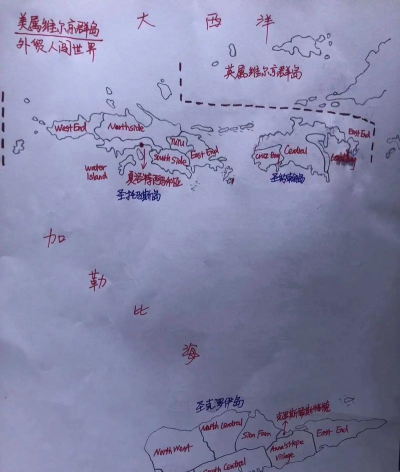 美属维尔京群岛
外假人闯世界
大西洋
英属维尔京群岛
West End
Northside
TUTU
South Side
East End
Water
Island
夏洛特阿马利亚
圣托马斯岛
Cruz Bay
Central
East End
圣约翰岛
加勒比海
圣克罗伊岛
North Central
Sion Farm
克里斯蒂安斯特德
North West
Anna's Hope
Village
East End
South Central